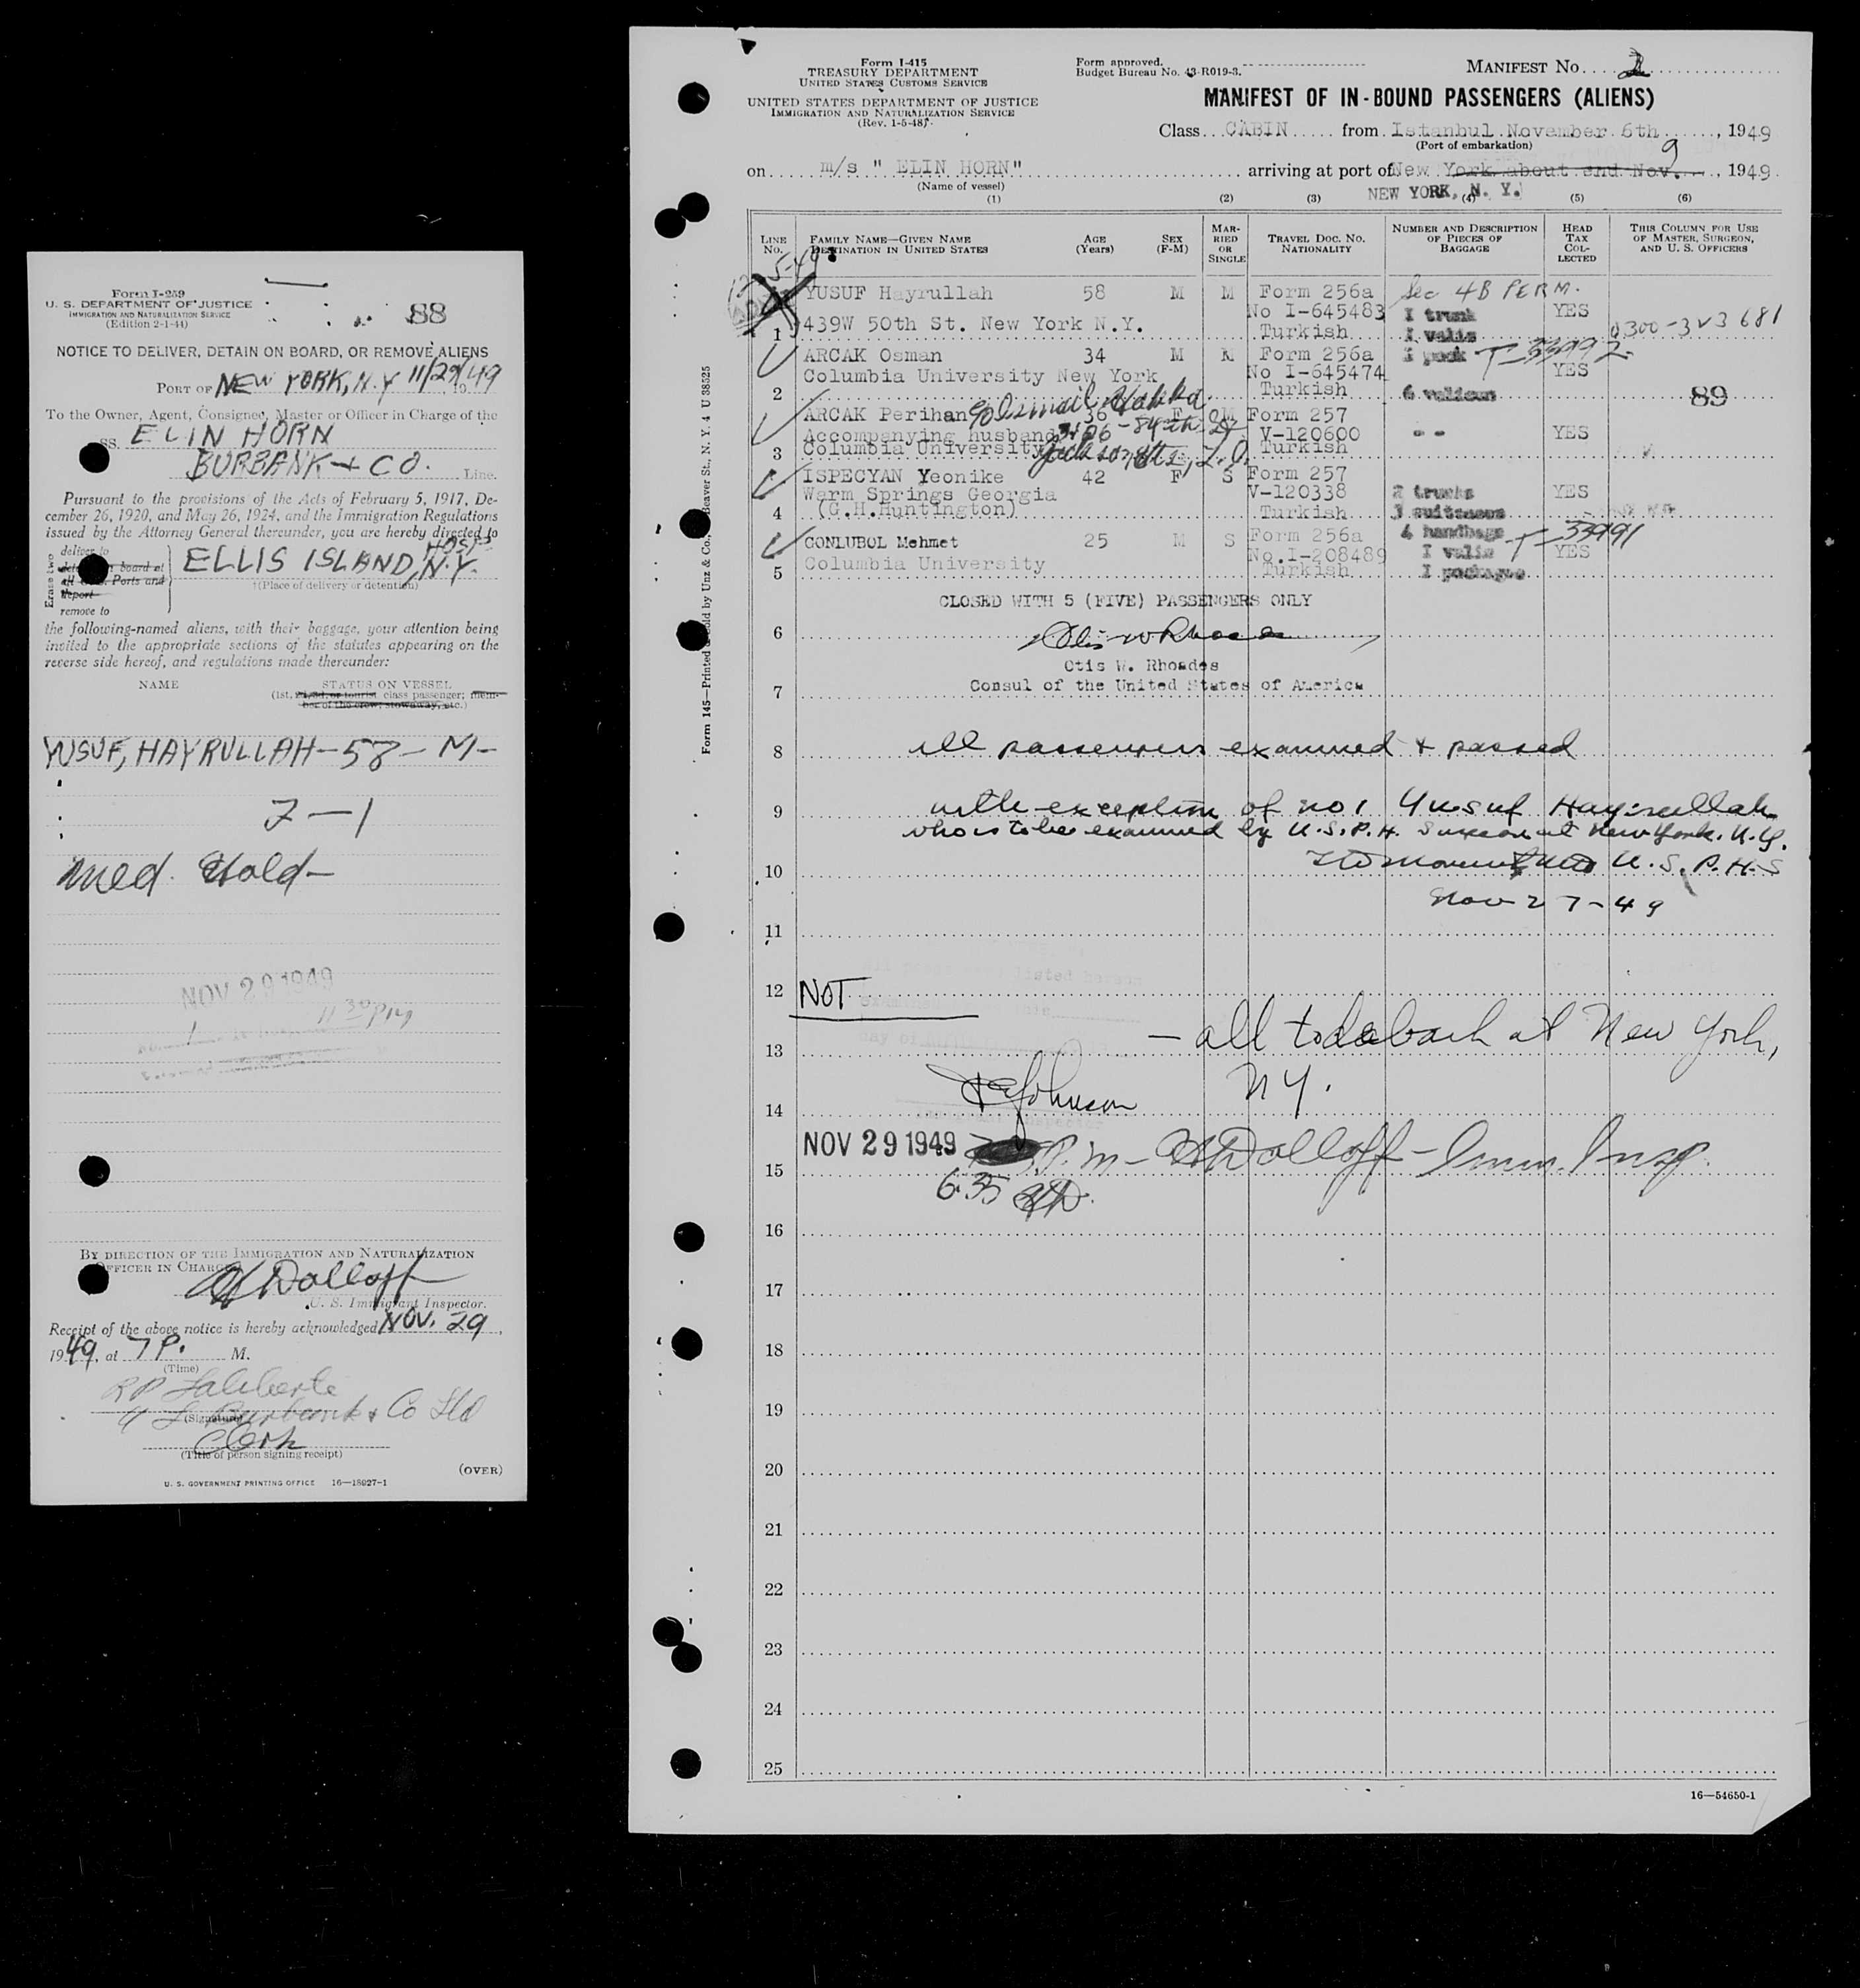 Form I-259
U. S. DEPARTMENT OF JUSTICE
IMMIGRATION AND NATURALIZATION SERVICE
(Edition 2-1-44)
88
NOTICE TO DELIVER, DETAIN ON BOARD, OR REMOVE ALIENS
PORT OF NEW YORK, N.Y 11/29/49, 19
To the Owner, Agent, Consignee, Master or Officer in Charge of the
SS. ELIN HORN
BURBANK + CO. Line.
Pursuant to the provisions of the Acts of February 5, 1917, De-
cember 26, 1920, and May 26, 1924, and the Immigration Regulations
issued by the Attorney General thereunder, you are hereby directed to
Erase two
deliver to
board at
Ports and
report
remove to
ELLIS ISLAND, HOSP N.Y.
(Place of delivery or detention)
the following-named aliens, with their baggage, your attention being
invited to the appropriate sections of the statutes appearing on the
reverse side hereof, and regulations made thereunder:
NAME STATUS ON VESSEL
(1st, 2d, 3d, or tourist class passenger; mem-
ber of the crew, stowaway, etc.)
YUSUF, HAYRULLAH - 58 - M -
2 - 1
Med. Hold -
NOV 29 1949
11 30 PM
BY DIRECTION OF THE IMMIGRATION AND NATURALIZATION
OFFICER IN CHARGE
Dolloff
U. S. Immigrant Inspector.
Receipt of the above notice is hereby acknowledged NOV. 29,
1949, at 7 P. M.
(Time)
R P Laliberte
Burbank & Co Ltd
(Signature)
Clerk
(Title of person signing receipt)
(OVER)
U. S. GOVERNMENT PRINTING OFFICE 16—18027-1
Form I-415
TREASURY DEPARTMENT
UNITED STATES CUSTOMS SERVICE
UNITED STATES DEPARTMENT OF JUSTICE
IMMIGRATION AND NATURALIZATION SERVICE
(Rev. 1-5-48)
Form approved.
Budget Bureau No. 43-R019-3.
MANIFEST No. 2
MANIFEST OF IN-BOUND PASSENGERS (ALIENS)
Class CABIN from Istanbul November 6th, 1949
(Port of embarkation)
on m/s " ELIN HORN" arriving at port of New York about end Nov. 9, 1949
(Name of vessel)
NEW YORK, N. Y.
(1) (2) (3) (4) (5) (6)
LINE No. FAMILY NAME—GIVEN NAME DESTINATION IN UNITED STATES AGE (Years) SEX (F-M) MAR-RIED OR SINGLE TRAVEL DOC. NO. NATIONALITY NUMBER AND DESCRIPTION OF PIECES OF BAGGAGE HEAD TAX COL-LECTED THIS COLUMN FOR USE OF MASTER, SURGEON, AND U. S. OFFICERS
YUSUF Hayrullah 58 M M Form 256a Sec 4B PERM.
No I-645483 I trunk YES
1 439W 50th St. New York N.Y. Turkish I valis 0300-323681
ARCAK Osman 34 M M Form 256a I pack T-33992
Columbia University New York No I-645474 YES
2 Turkish 6 valicus 89
ARCAK Perihan 36 F M Form 257
c/o Ismail
Accompanying husband V-120600 - - YES
3406 - 84th St
3 Columbia University Turkish
Jackson Hts, L.I.
ISPECYAN Yeonike 42 F S Form 257
Warm Springs Georgia V-120338 2 trucks YES
4 (G.H.Huntington) Turkish 3 suitcases
CONLUBOL Mehmet 25 M S Form 256a 4 handbags T-33991
Columbia University No.I-208489 I valis YES
5 Turkish I packages
CLOSED WITH 5 (FIVE) PASSENGERS ONLY
6 Otis W Rhoades
Otis W. Rhoades
7 Consul of the United States of America
8 all passengers examined & passed
9 with exception of no 1 Yusuf Hayirullah
who is to be examined by U.S.P.H. Surgeon at New York, N.Y.
10 U.S.P.H.S
Nov 27-49
11
12 NOT
13 - all to debark at New York,
14 Johnson N Y.
NOV 29 1949 P.m - Dolloff - Imm. Insp.
15
6.35
16
17
18
19
20
21
22
23
24
25
16—54650-1
Form 145—Printed Sold by Unz & Co., Beaver St., N. Y. 4 U 38525